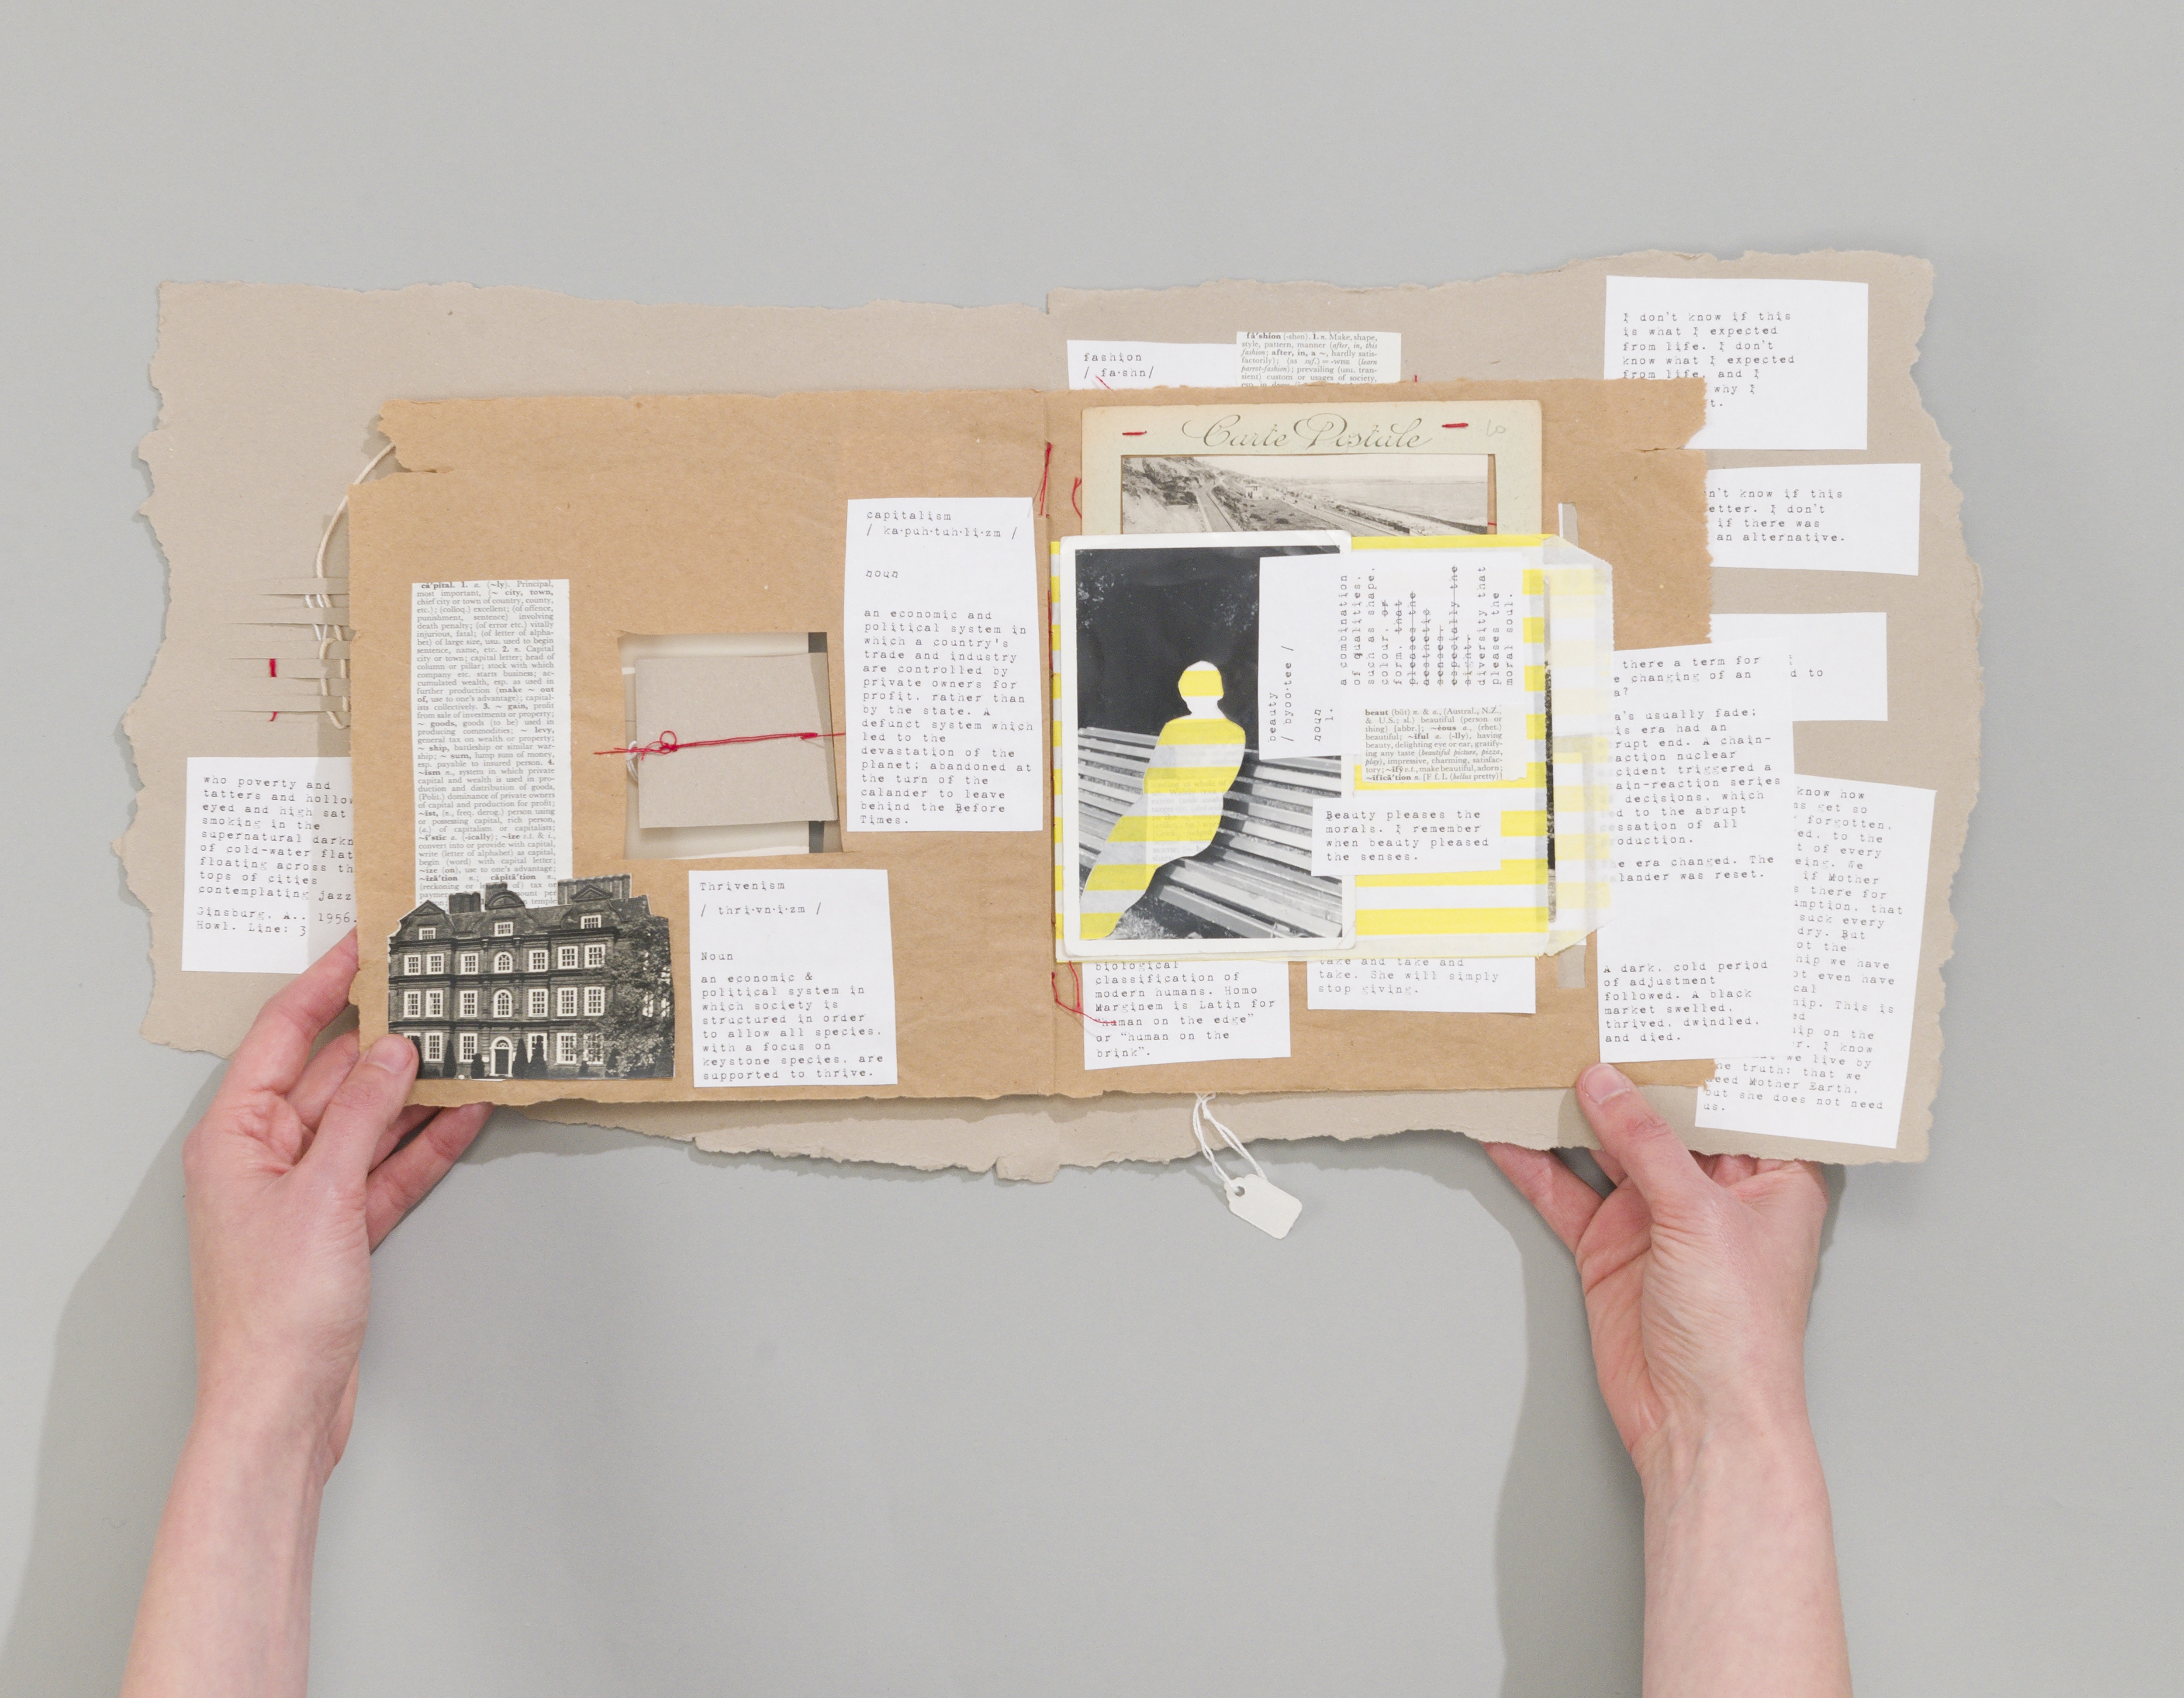 who poverty and
tatters and hollow
eyed and high sat
smoking in the
supernatural darkn
of cold-water flat
floating across th
tops of cities
contemplating jazz
Ginsburg. A.. 1956.
Howl. Line: 3
că'pital. 1. a. (~ly). Principal,
most important, (~ city, town,
chief city or town of country, county,
etc.); (colloq.) excellent; (of offence,
punishment, sentence) involving
death penalty; (of error etc.) vitally
injurious, fatal; (of letter of alpha-
bet) of large size, usu. used to begin
sentence, name, etc. 2. n. Capital
city or town; capital letter; head of
column or pillar; stock with which
company etc. starts business; ac-
cumulated wealth, esp. as used in
further production (make ~ out
of, use to one's advantage); capital-
ists collectively. 3. ~ gain, profit
from sale of investments or property;
~ goods, goods (to be) used in
producing commodities; ~ levy,
general tax on wealth or property;
~ ship, battleship or similar war-
ship; ~ sum, lump sum of money
exp. payable to insured person. 4.
~ism n., system in which private
capital and wealth is used in pro-
duction and distribution of goods,
(Polit.) dominance of private owners
of capital and production for profit;
~ist, (n., freq. derog.) person using
or possessing capital, rich person,
(a.) of capitalism or capitalists;
~i'stic a. (-ically); ~ize v.t. & i.,
convert into or provide with capital,
write (letter of alphabet) as capital,
begin (word) with capital letter;
~ize (on), use to one's advantage;
~izā'tion n.; căpitā'tion n.,
(reckoning or of) tax or
capitalism
/ ka·puh·tuh·li·zm /
noun
an economic and
political system in
which a country's
trade and industry
are controlled by
private owners for
profit. rather than
by the state. A
defunct system which
led to the
devastation of the
planet; abandoned at
the turn of the
calander to leave
behind the Before
Times.
Thrivenism
/ thri·vn·i·zm /
Noun
an economic &
political system in
which society is
structured in order
to allow all species.
with a focus on
keystone species. are
supported to thrive.
fashion
/ fa·shn/
fă'shion (-shn). 1. n. Make, shape,
style, pattern, manner (after, in, this
fashion; after, in, a ~, hardly satis-
factorily); (as suf.) = -WISE (learn
parrot-fashion); prevailing (usu. tran-
sient) custom or usages of society,
Carte Postale
beauty
/ byoo·tee /
noun
1.
a combination
of qualities.
such as shape.
colour. or
form. that
pleases the
aesthetic
senses.
especially the
sight.
diversity that
pleases the
moral soul.
beaut (būt) n. & a., (Austral., N.Z.,
& U.S.; sl.) beautiful (person or
thing) [abbr.]; ~éous a., (rhet.)
beautiful; ~iful a. (-lly), having
beauty, delighting eye or ear, gratify-
ing any taste (beautiful picture, pizza,
play), impressive, charming, satisfac-
tory; ~ifȳ v.t., make beautiful, adorn;
~ificā'tion n. [F f. L (bellus pretty)]
Beauty pleases the
morals. I remember
when beauty pleased
the senses.
biological
classification of
modern humans. Homo
Marginem is Latin for
"human on the edge"
or "human on the
brink".
take and take and
take. She will simply
stop giving.
I don't know if this
is what I expected
from life. I don't
know what I expected
from life. and I
why I
t.
n't know if this
etter. I don't
if there was
an alternative.
there a term for
e changing of an
a?
d to
a's usually fade;
is era had an
rupt end. A chain-
action nuclear
cident triggered a
ain-reaction series
decisions. which
d to the abrupt
ssation of all
oduction.
he era changed. The
lander was reset.
A dark. cold period
of adjustment
followed. A black
market swelled.
thrived. dwindled.
and died.
know how
s get so
forgotten.
ed. to the
t of every
eing. We
if Mother
s there for
mption. that
suck every
dry. But
ot the
hip we have
ot even have
cal
hip. This is
ed
ip on the
r. I know
we live by
ne truth; that we
need Mother Earth.
but she does not need
us.